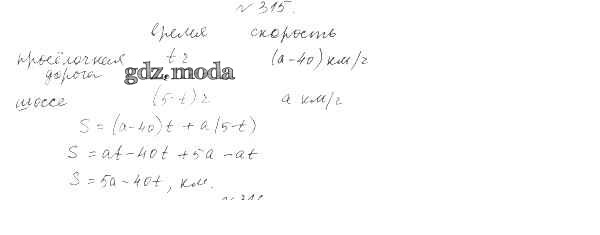 № 315.
время скорость
просёлочная t г (a-40) км/г
дорога gdz.moda
шоссе (5-t) г a км/г
S = (a-40)t + a(5-t)
S = at - 40t + 5a - at
S = 5a - 40t, км.